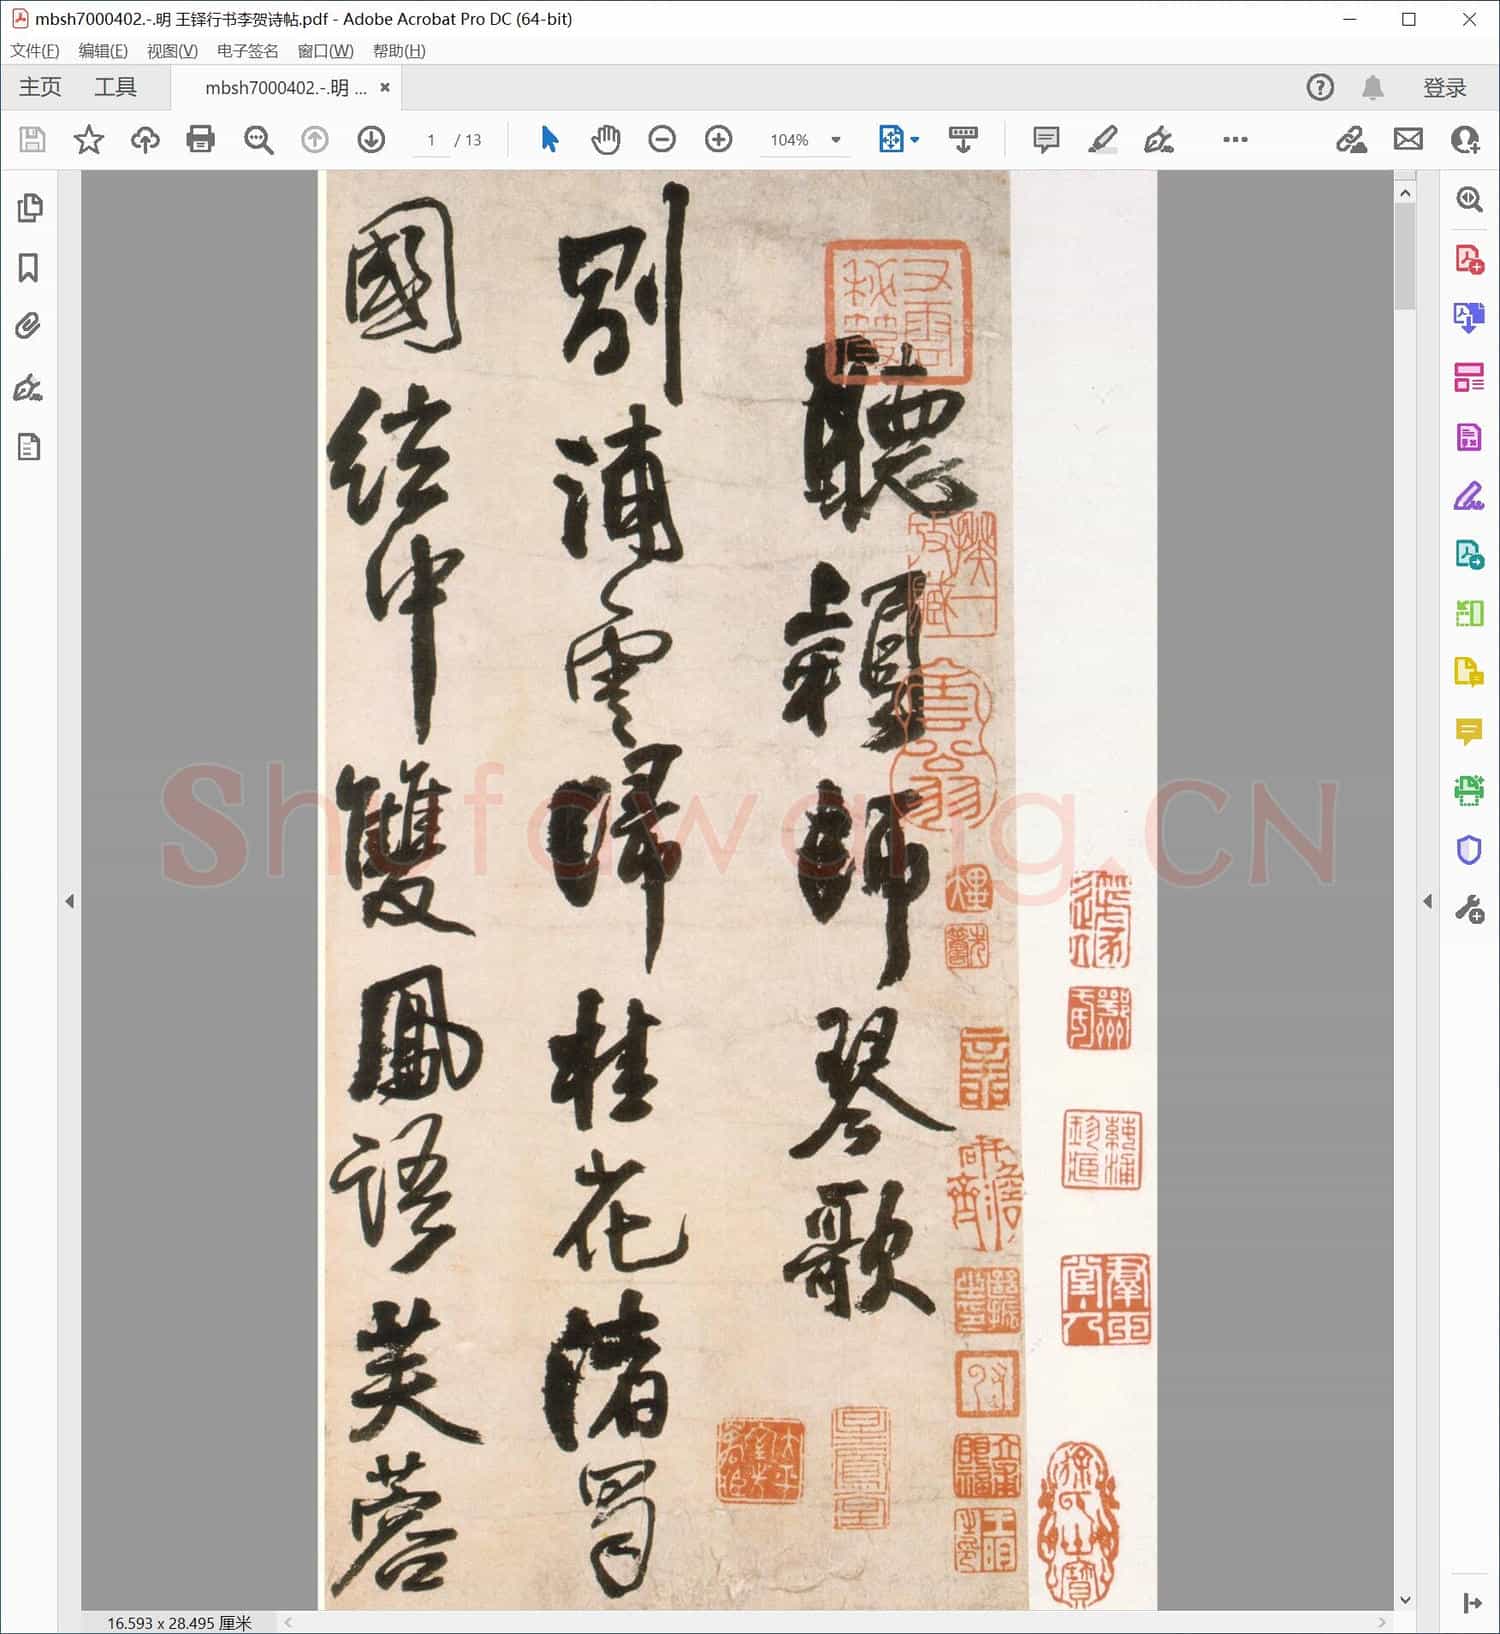 mbsh7000402.-.明 王铎行书李贺诗帖.pdf - Adobe Acrobat Pro DC (64-bit)
文件(F) 编辑(E) 视图(V) 电子签名 窗口(W) 帮助(H)
主页 工具 mbsh7000402.-.明 ... 登录
1 / 13 104%
聽穎師琴歌
別浦雲歸桂花渚蜀
國絃中雙鳳語芙蓉
Shufawang.CN
16.593 x 28.495 厘米